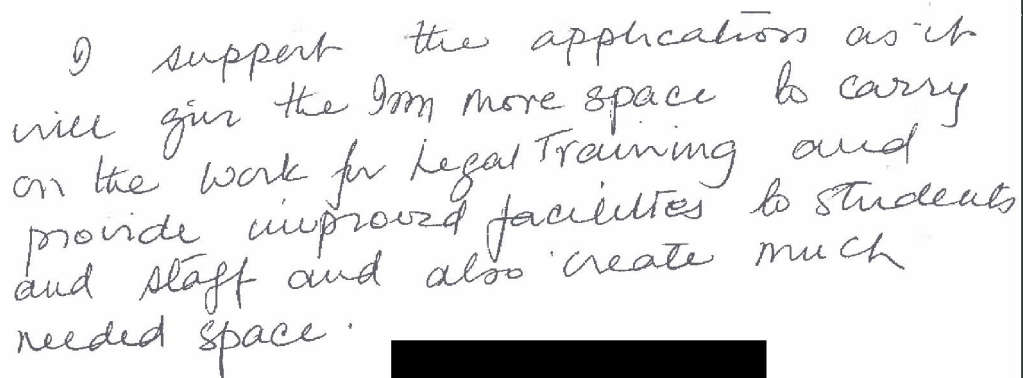 I support the applications as it
will give the Inn more space to carry
on the work for Legal Training and
provide improved facilities to students
and staff and also create much
needed space.